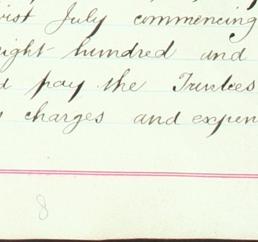 July commencing
hundred and
pay the Trustees
charges and expen
8